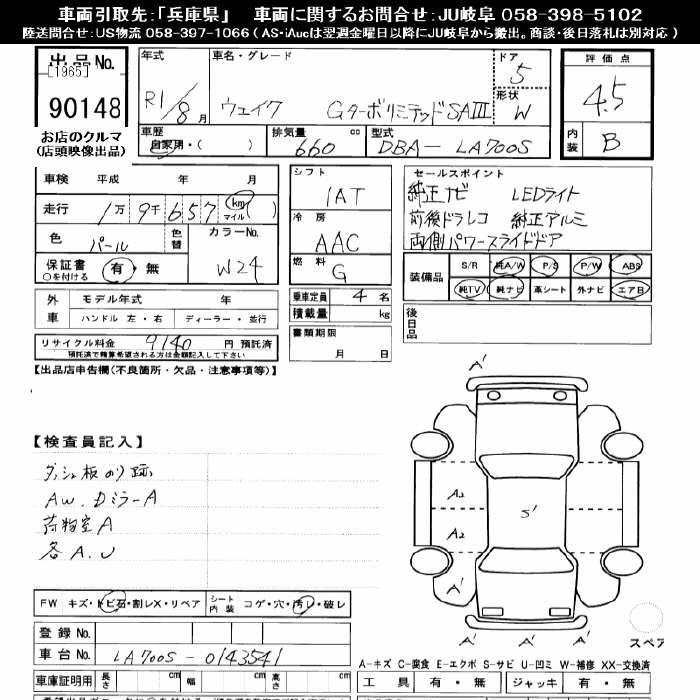 車両引取先：「兵庫県」　車両に関するお問合せ：JU岐阜 058-398-5102
陸送問合せ：US物流 058-397-1066 ( AS・iAucは翌週金曜日以降にJU岐阜から搬出。商談・後日落札は別対応 )
出品No.
[1965]
90148
お店のクルマ
(店頭映像出品)
年式
R1/8月
車名・グレード
ウェイク　GターボリミテッドSAⅢ
ドア
5
形状
W
評価点
4.5
内装
B
車歴
自家用・(　　)
排気量
660 cc
型式
DBA- LA700S
車検　平成　　年　　月
走行　1万9千657 km マイル (　)
色　パール
色替
カラーNo.
W24
保証書
○を付ける
有・無
シフト
IAT
冷房
AAC
燃料
G
セールスポイント
純正ナビ　LEDライト
前後ドラレコ　純正アルミ
両側パワースライドドア
装備品
S/R　純A/W　P/S　P/W　ABS
純TV　純ナビ　革シート　外ナビ　エアB
外車
モデル年式　　年
ハンドル 左・右
ディーラー・並行
乗車定員　4名
積載量　kg
書類期限
月　日
後日品
リサイクル料金　9140　円 預託済
預託済で精算希望される方は金額記入して下さい
【出品店申告欄(不良箇所・欠品・注意事項等)】
【検査員記入】
ダッシュ板のり跡
AW. DミラーA
荷物室A
各A.U
A'
A2
A2
S'
A'
A'
A'
A'
スペア
FW　キズ・トビ石・割レX・リペア
シート内装　コゲ・穴・汚レ・破レ
登録No.
車台No.　LA700S-0143541
車庫証明用　長さ　幅　高さ
A-キズ C-腐食 E-エクボ S-サビ U-凹ミ W-補修 XX-交換済
工具　有・無　ジャッキ　有・無